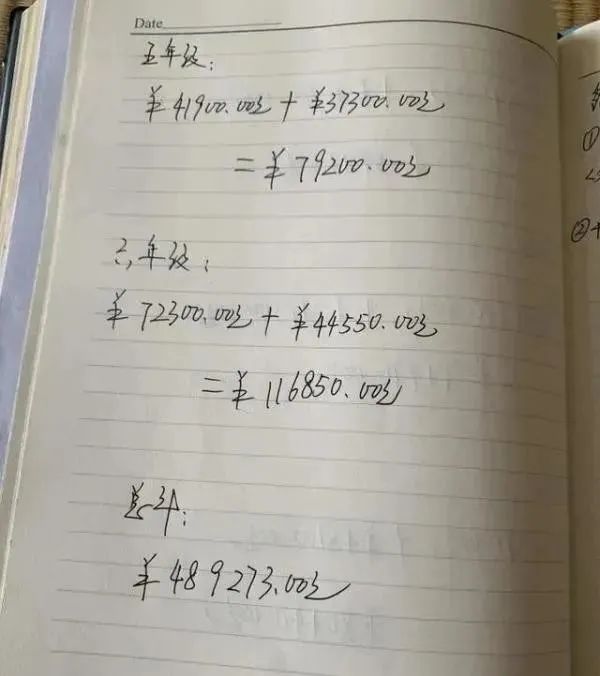 Date
五年级:
¥41900.00元+¥37300.00元
=¥79200.00元
六年级:
¥72300.00元+¥44550.00元
=¥116850.00元
总计:
¥489273.00元
①
②